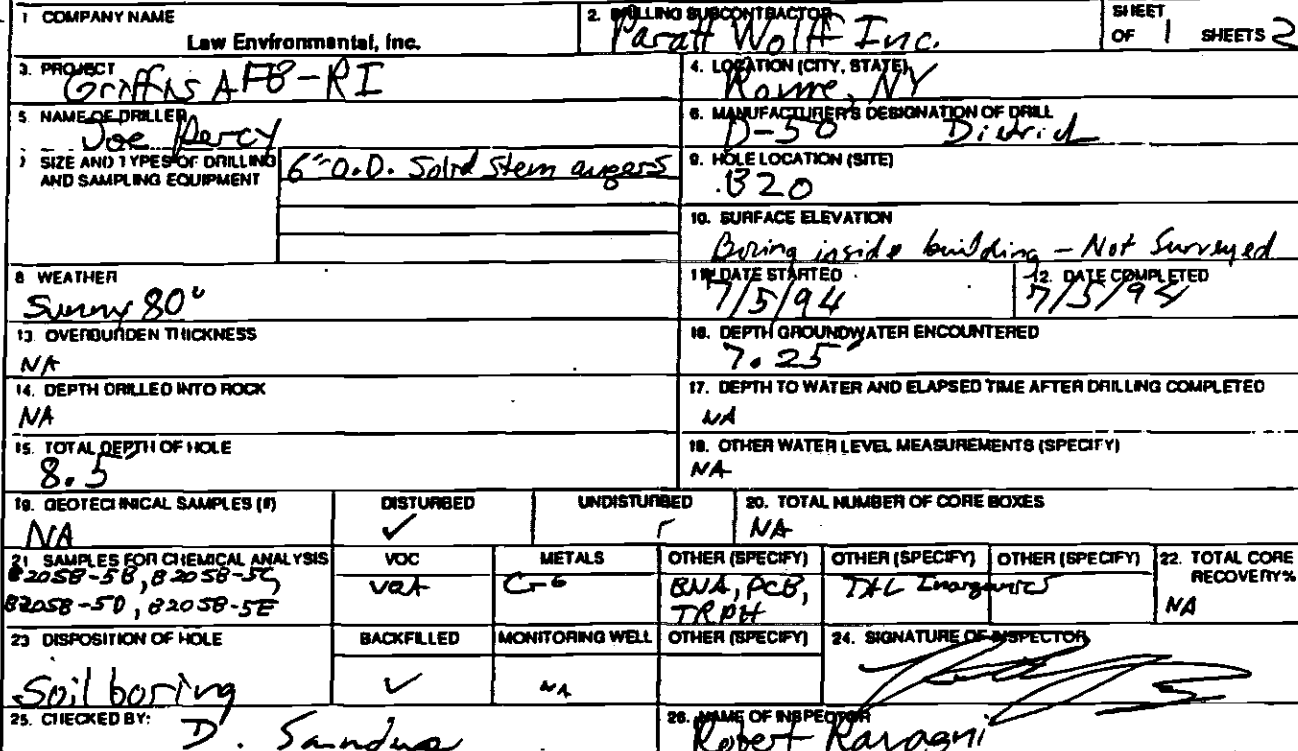 1 COMPANY NAME
Law Environmental, Inc.
2. DRILLING SUBCONTRACTOR
Paratt Wolff Inc.
SHEET 1
OF SHEETS 2
3. PROJECT
Griffis AFB-RI
4. LOCATION (CITY, STATE)
Rome, NY
5. NAME OF DRILLER
Joe Percy
6. MANUFACTURER'S DESIGNATION OF DRILL
D-50 Dietrich
7 SIZE AND TYPES OF DRILLING
AND SAMPLING EQUIPMENT
6" O.D. Solid Stem augers
9. HOLE LOCATION (SITE)
B20
10. SURFACE ELEVATION
Boring inside building - Not Surveyed
8 WEATHER
Sunny 80°
11. DATE STARTED
7/5/94
12. DATE COMPLETED
7/5/94
13. OVERBURDEN THICKNESS
NA
16. DEPTH GROUNDWATER ENCOUNTERED
7.25'
14. DEPTH DRILLED INTO ROCK
NA
17. DEPTH TO WATER AND ELAPSED TIME AFTER DRILLING COMPLETED
NA
15. TOTAL DEPTH OF HOLE
8.5'
18. OTHER WATER LEVEL MEASUREMENTS (SPECIFY)
NA
19. GEOTECHNICAL SAMPLES (#)
NA
DISTURBED
✓
UNDISTURBED
20. TOTAL NUMBER OF CORE BOXES
NA
21. SAMPLES FOR CHEMICAL ANALYSIS
B20SB-5B, B20SB-5C,
B20SB-5D, B20SB-5E
VOC
VOA
METALS
OTHER (SPECIFY)
BNA, PCB,
TRPH
OTHER (SPECIFY)
TAL Inorganics
OTHER (SPECIFY)
22. TOTAL CORE
RECOVERY%
NA
23 DISPOSITION OF HOLE
Soil boring
BACKFILLED
✓
MONITORING WELL
NA
OTHER (SPECIFY)
24. SIGNATURE OF INSPECTOR
25. CHECKED BY:
D.
26. NAME OF INSPECTOR
Robert Ravagni